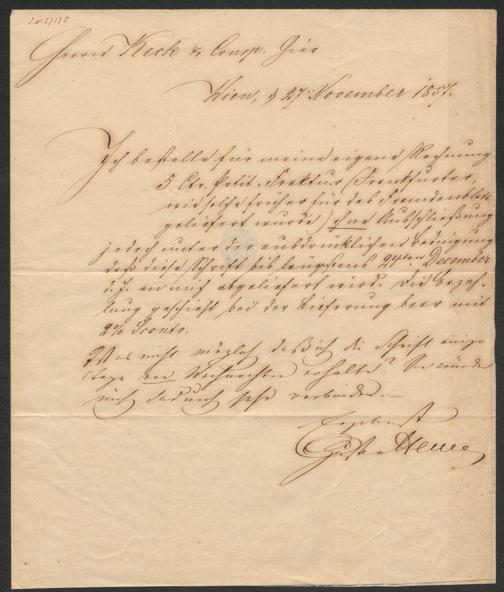 J. N. 27135
Herren Keck & Comp. hier
Wien, d 27 November 1857.
Ich bestelle für meine eigene Rechnung
5 Ctr. Petit-Fraktur (Frankfurter,
wie solche früher für das Fremdenblatt
geliefert wurde) ohne Ausschließung
jedoch unter der ausdrücklichen Bedingung
daß diese Schrift bis längstens 24ten December
d. J. an mich abgeliefert wird. Die Bezah-
lung geschieht bei der Lieferung baar mit
2% Sconto.
nicht möglich daß ich die Schrift einige
Tage vor Weihnachten erhalte? Sie würden
mich dadurch sehr verbinden.—
Ergebenst
Gustav Heine